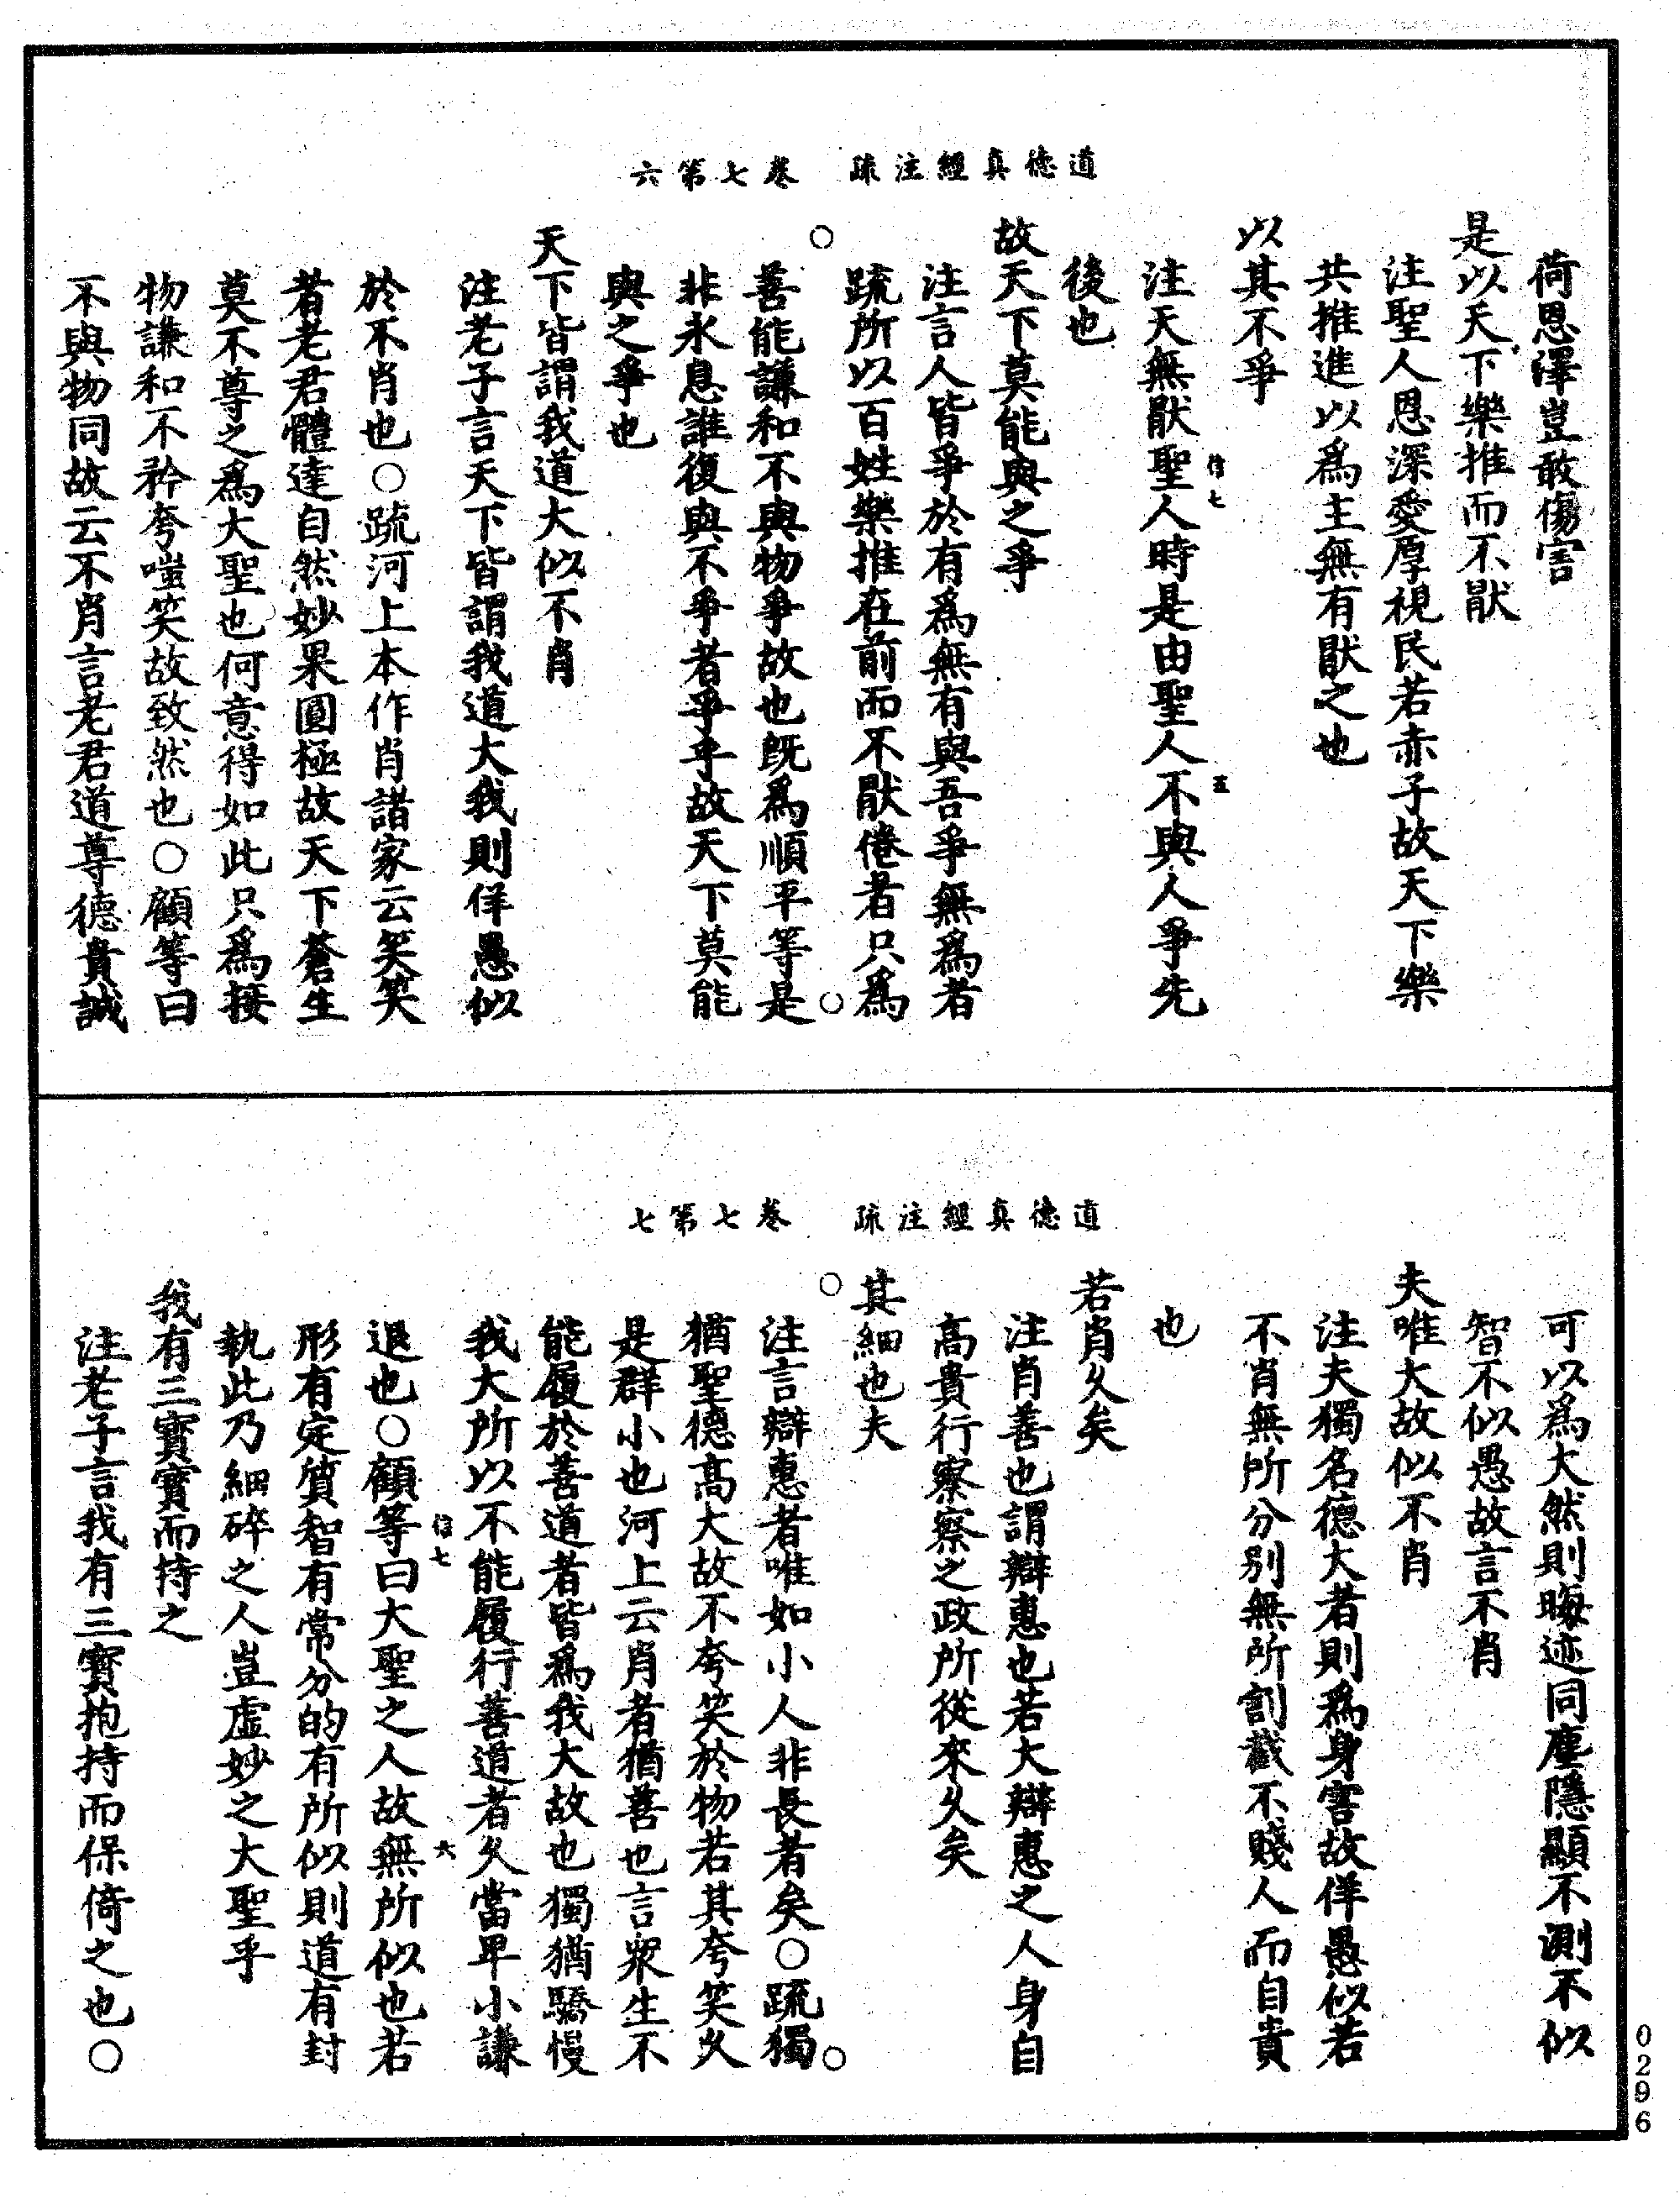 道德真經注疏　卷七第六
荷恩澤豈敢傷害
是以天下樂推而不猒
注聖人恩深愛厚視民若赤子故天下樂
共推進以爲主無有猒之也
以其不爭
注天無猒聖人時是由聖人不與人爭先
信七
五
後也
故天下莫能與之爭
注言人皆爭於有爲無有與吾爭無爲者
疏所以百姓樂推在前而不猒倦者只爲
○
○
善能謙和不與物爭故也旣爲順平等是
非永息誰復與不爭者爭乎故天下莫能
與之爭也
天下皆謂我道大似不肖
注老子言天下皆謂我道大我則佯愚似
於不肖也○疏河上本作肖諸家云笑笑
者老君體達自然妙果圓極故天下蒼生
莫不尊之爲大聖也何意得如此只爲接
物謙和不矜夸嗤笑故致然也○顧等曰
不與物同故云不肖言老君道尊德貴誠
道德真經注疏　卷七第七
可以爲大然則晦迹同塵隱顯不測不似
智不似愚故言不肖
夫唯大故似不肖
注夫獨名德大者則爲身害故佯愚似若
不肖無所分別無所割截不賤人而自貴
也
若肖久矣
注肖善也謂辯惠也若大辯惠之人身自
高貴行察察之政所從來久矣
其細也夫
○
○
注言辯惠者唯如小人非長者矣○疏獨
猶聖德高大故不夸笑於物若其夸笑久
是群小也河上云肖者猶善也言衆生不
能履於善道者皆爲我大故也獨猶驕慢
我大所以不能履行善道者久當卑小謙
退也○顧等曰大聖之人故無所似也若
信七
六
形有定質智有常分的有所似則道有封
執此乃細碎之人豈虛妙之大聖乎
我有三寶寶而持之
注老子言我有三寶抱持而保倚之也○
0296